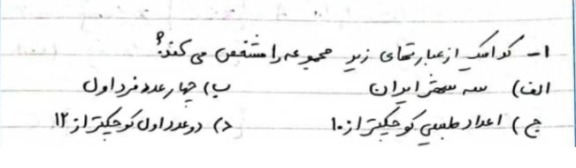 ۱- کدامیک از عبارتهای زیر مجموعه را مشخص می کند؟
الف) سه شهر ایران ب) چهار عدد فرد اول
ج) اعداد طبیعی کوچکتر از ۱۰ د) دو عدد اول کوچکتر از ۱۲